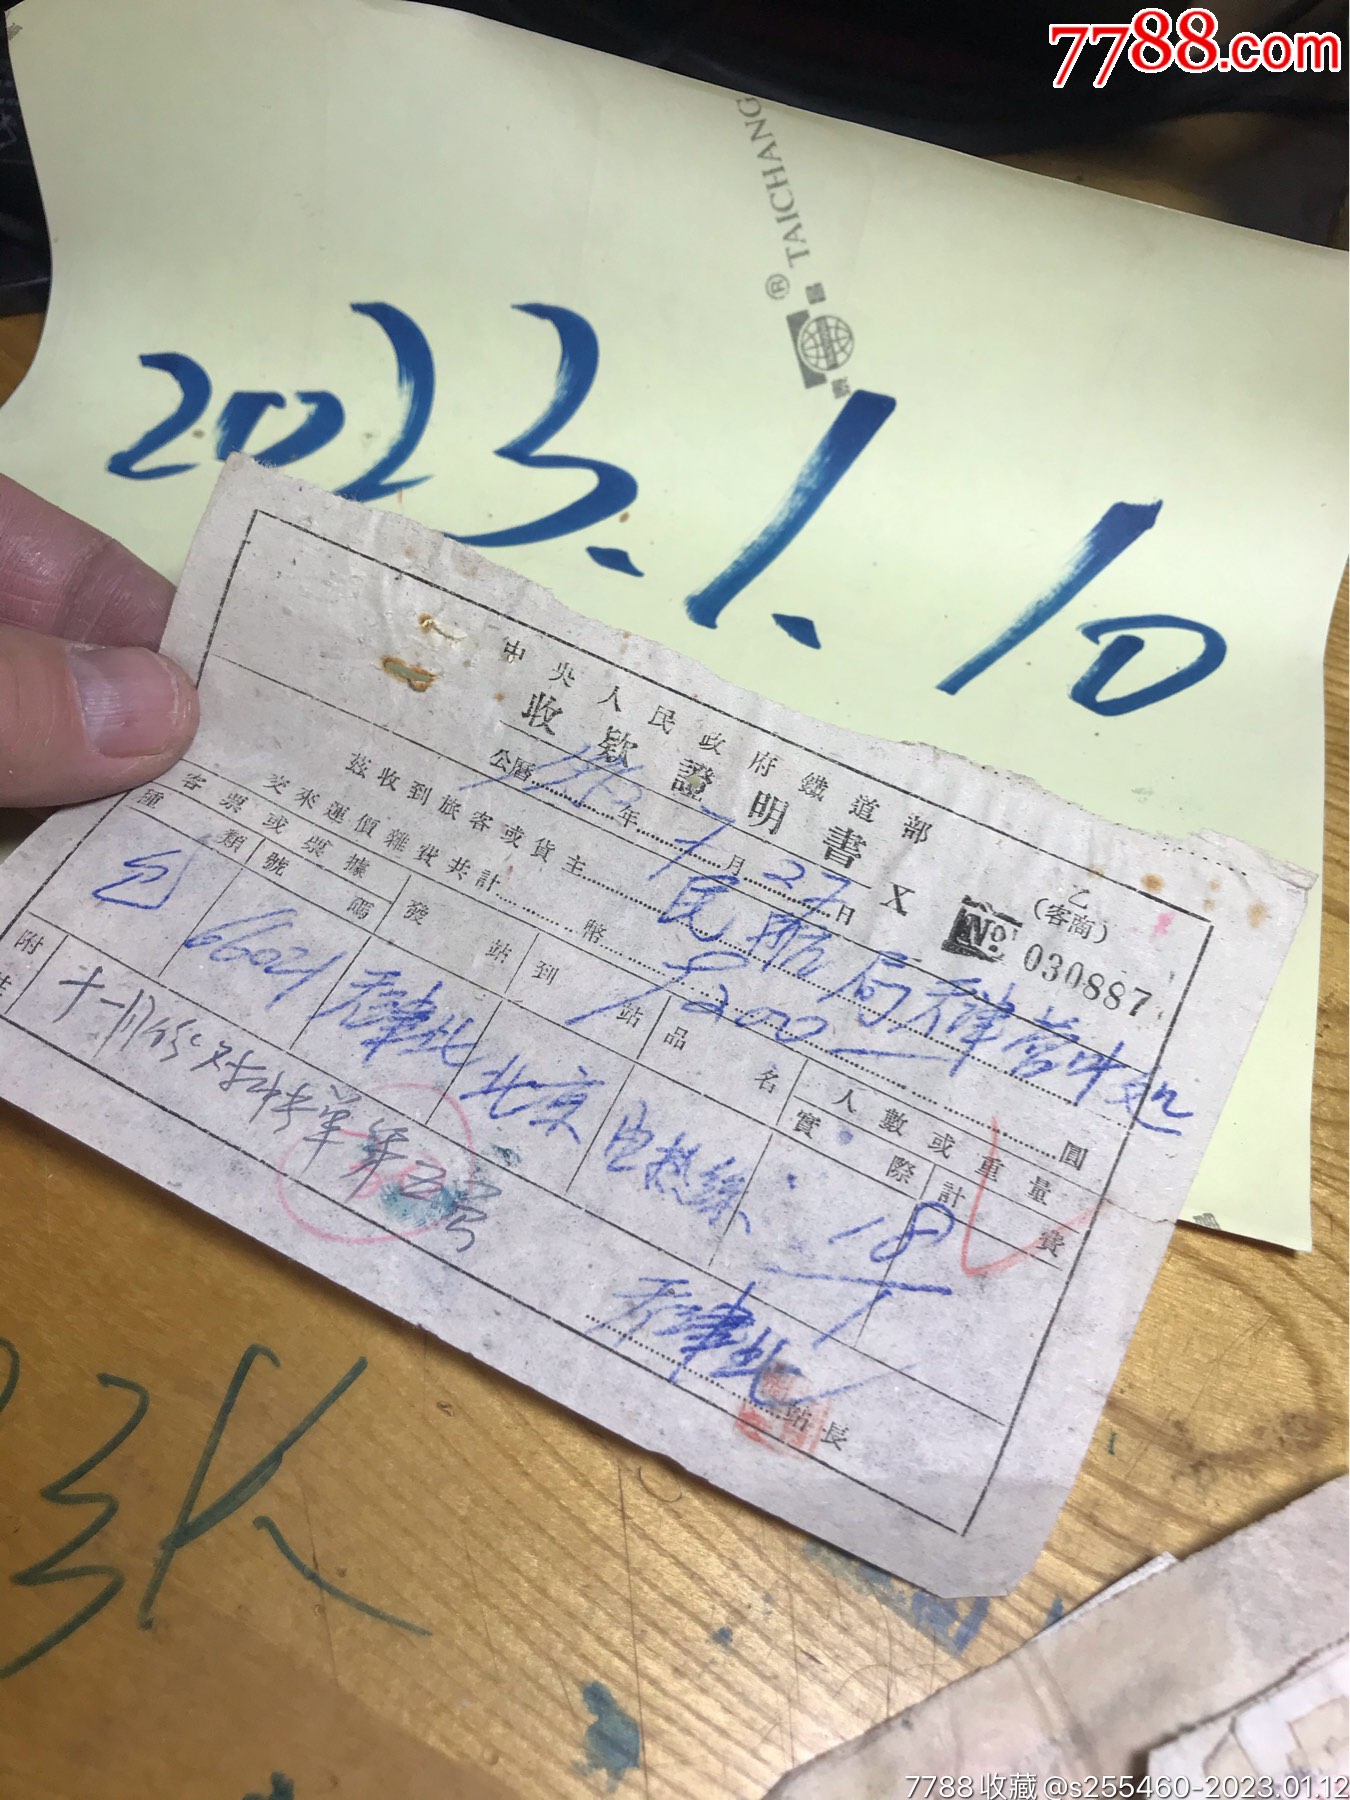 7788.com
® TAICHANG
2023.1.10
中央人民政府鐵道部
收欵證明書 X
乙
(客商)
№ 030887
公曆 年 月27日
茲收到旅客或貨主 民航局天津营业处
交來運價雜費共計 幣 9200 圓
客票或票據 發站 到站 品名 人數或重量 費
種類 號碼 實際 計
包 66021 天津北 北京 电热线 18
附
天津北 站長
張
7788收藏@s255460-2023.01.12